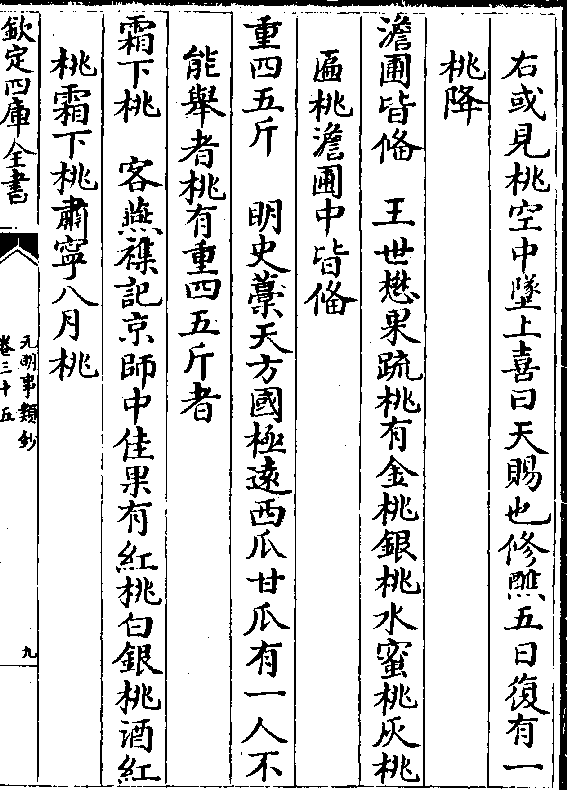 右或見桃空中墜上喜曰天賜也修醮五日復有一
桃降
澹圃皆俻　王世懋果疏桃有金桃銀桃水蜜桃灰桃
匾桃澹圃中皆俻
重四五斤　明史藁天方國極遠西瓜甘瓜有一人不
能舉者桃有重四五斤者
霜下桃　客燕襍記京師中佳果有紅桃白銀桃酒紅
桃霜下桃肅寧八月桃
欽定四庫全書
元明事類鈔
卷三十五
九